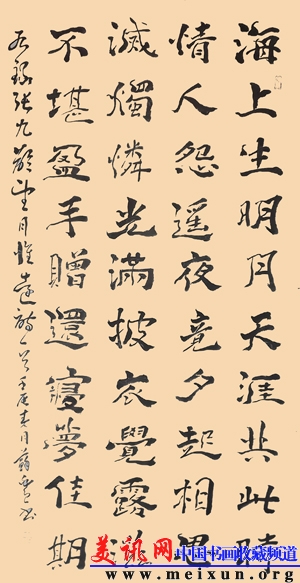 海上生明月天涯共此時
情人怨遥夜竟夕起相思
滅燭憐光滿披衣覺露滋
不堪盈手贈還寝夢佳期
右錄張九齡望月懷遠詩一首春月書
美讯网
中国书画收藏频道
www.meixun.org